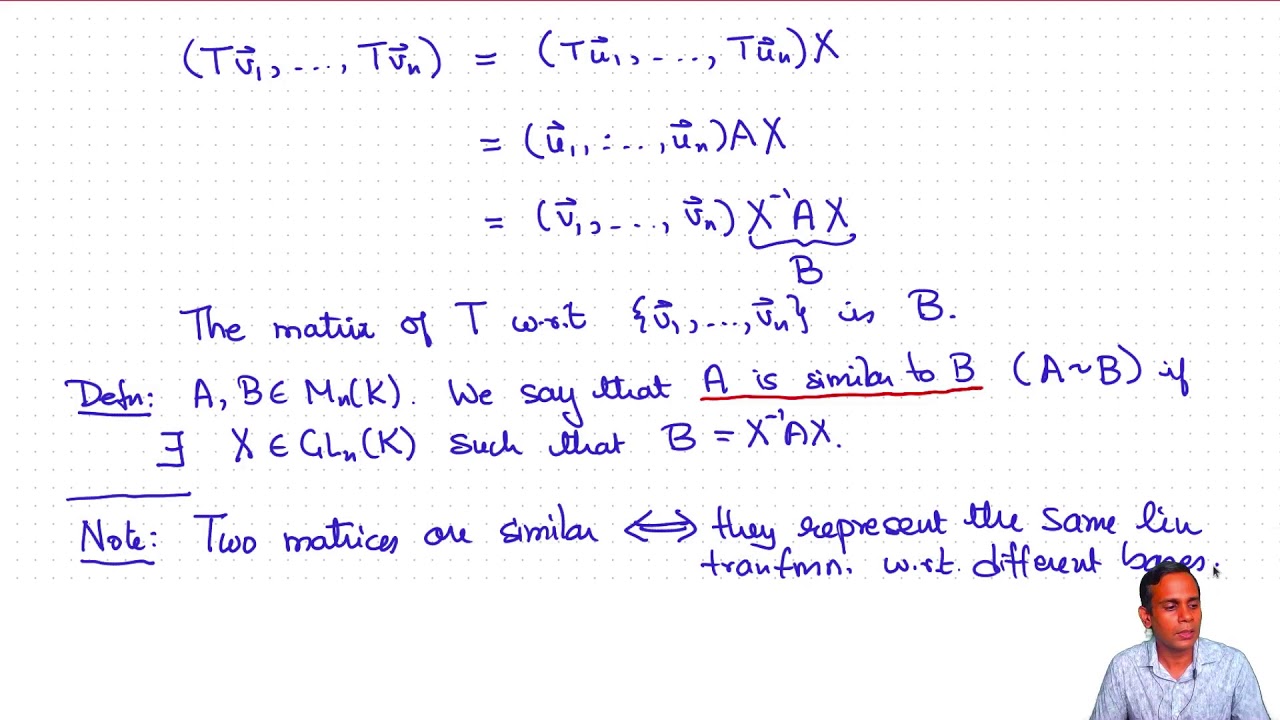 (Tv⃗₁, ..., Tv⃗ₙ) = (Tu⃗₁, ..., Tu⃗ₙ)X
= (u⃗₁, ..., u⃗ₙ)AX
= (v⃗₁, ..., v⃗ₙ) X⁻¹AX
B
The matrix of T w.r.t {v⃗₁, ..., v⃗ₙ} is B.
Defn: A, B ∈ Mₙ(K). We say that A is similar to B (A ~ B) if
∃ X ∈ GLₙ(K) such that B = X⁻¹AX.
Note: Two matrices are similar ⟺ they represent the same lin
tranfmn. w.r.t. different bases.